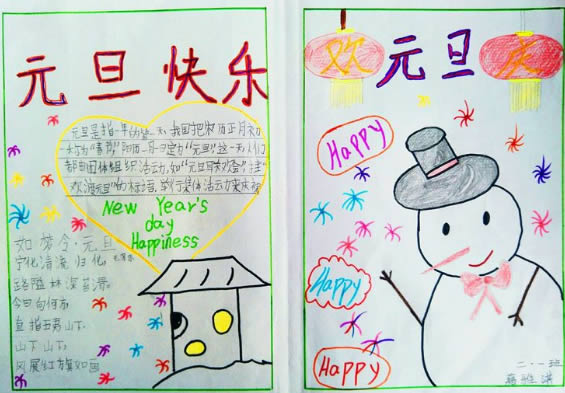 元旦快乐
元旦是指一年的第一天,我国把农历正月初
一称为“春节”,阳历一月一日定为“元旦”,这一天人们
都由团体组织活动,如“元旦联欢
欢渡元旦”的标语,或行集体活动
New Year's
day
Happiness
如梦令·元旦
毛泽东
宁化清流归化
路隘林深苔滑
今日向何方
直指武夷山下
山下山下
风展红旗如画
欢元旦庆
Happy
Happy
Happy
二·一班